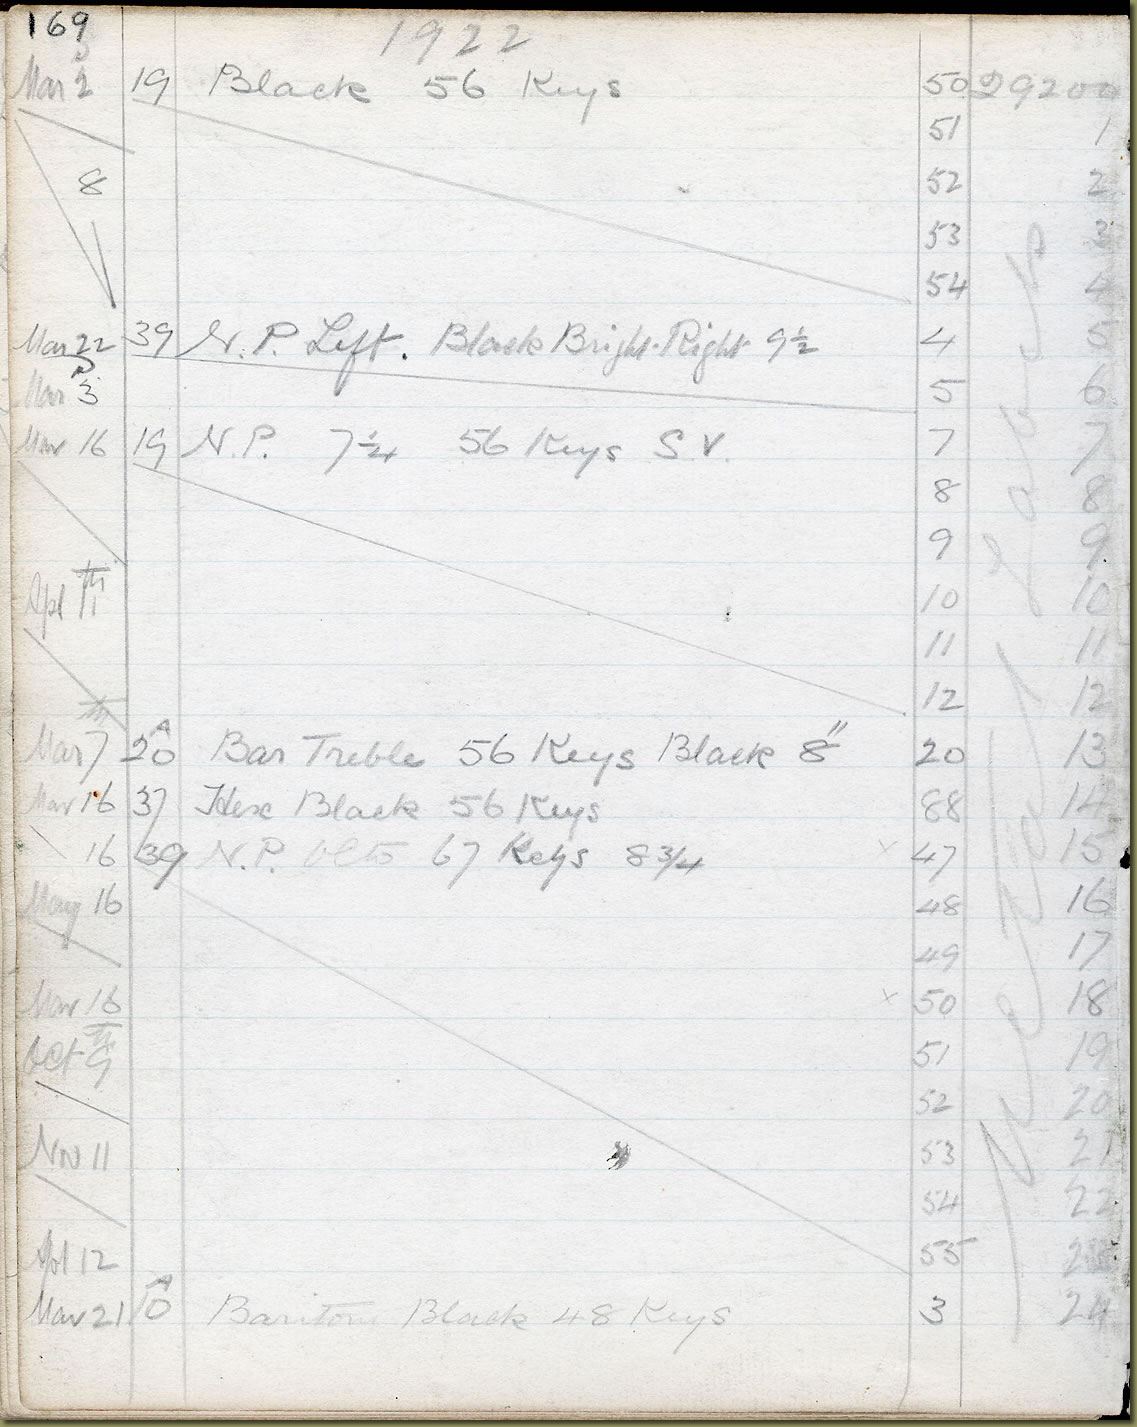 169
1922
Mar 2 19 Black 56 Keys 50 29200
51 1
8 52 2
53 3
54 4
Mar 22 39 N.P. Left. Black Bright Right 9½ 4 5
Mar 3 5 6
Mar 16 19 N.P. 7¼ 56 Keys S.V. 7 7
8 8
9 9
Apl 11th 10 10
11 11
12 12
Mar 7th 20A Bar Treble 56 Keys Black 8" 20 13
Mar 16 37 Hex Black 56 Keys 88 14
16 39 N.P. 67 Keys 8¾ x 47 15
May 16 48 16
49 17
Mar 16 x 50 18
Oct 9th 51 19
52 20
Nov 11 53 21
54 22
Apl 12 55 23
Mar 21 10A Baritone Black 48 Keys 3 24